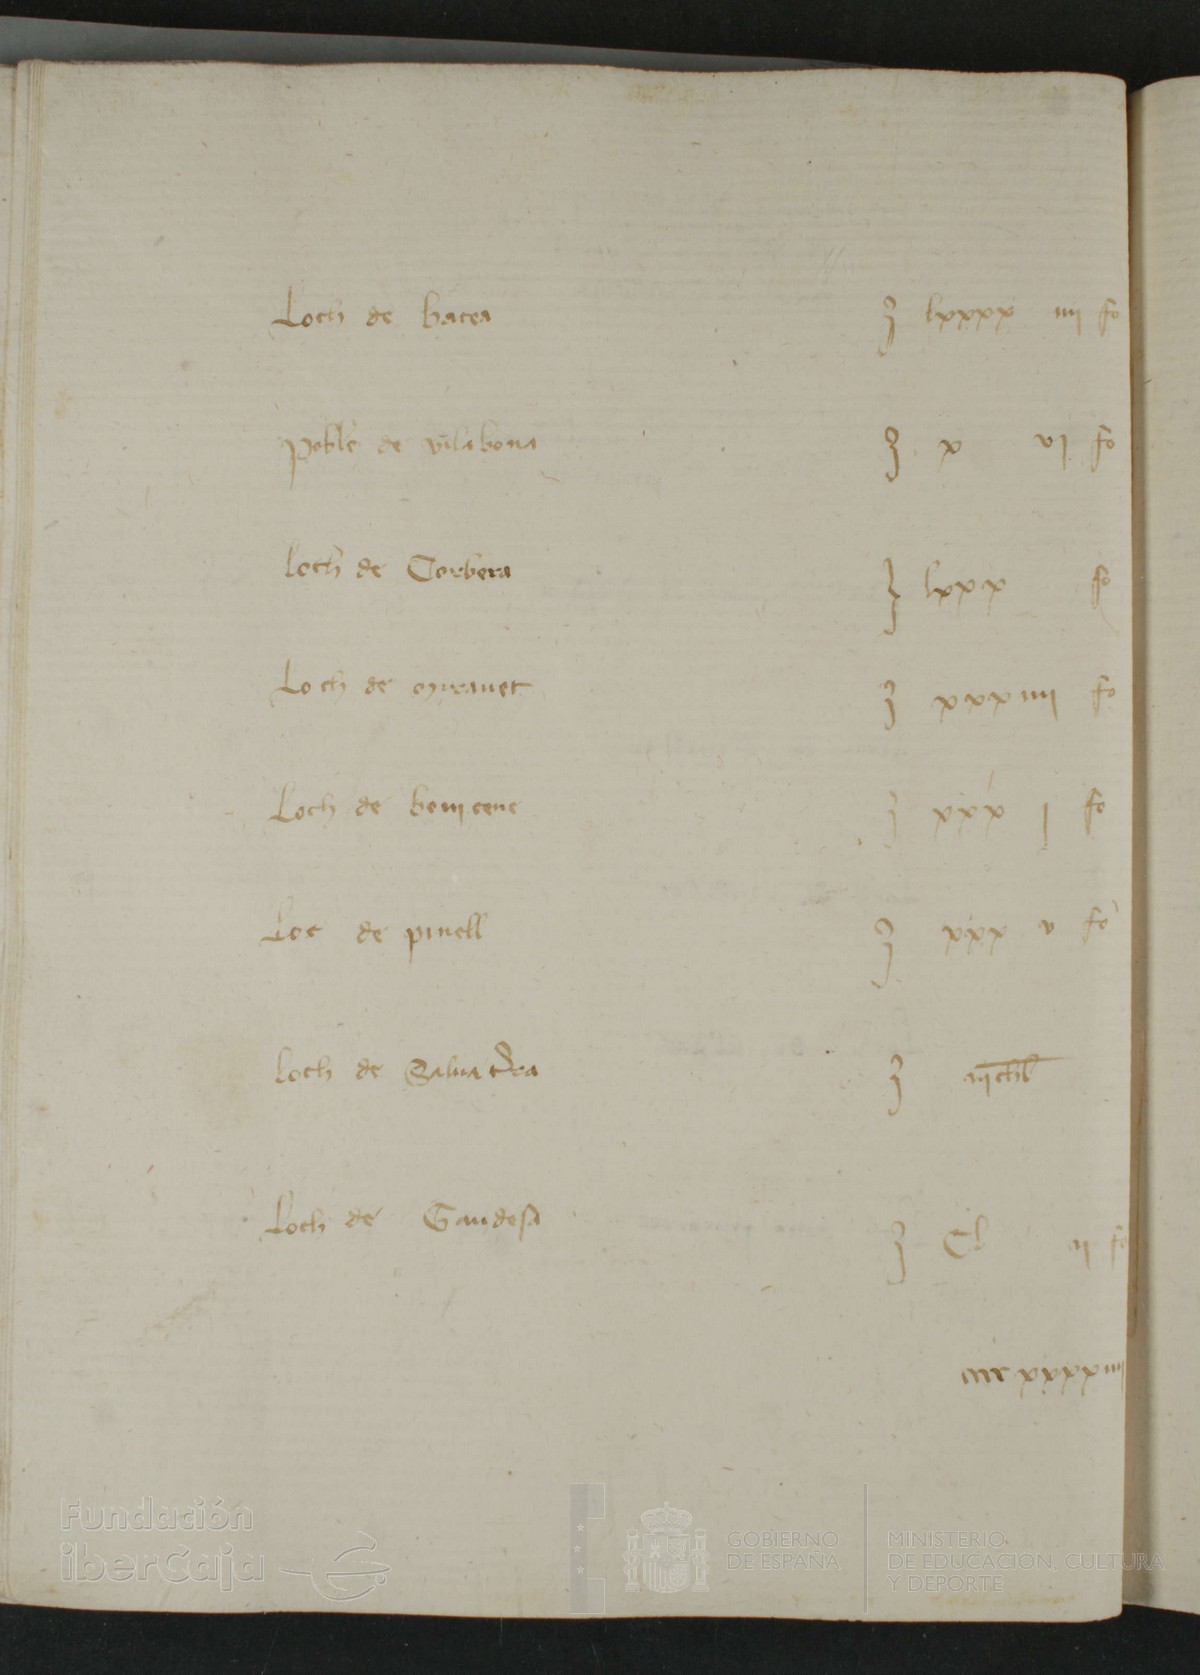 Loch de batea } lxxxx iiii fo
Poble de vilabona } x vi fo
loch de Corbera } lxxx fo
Loch de miravet } xxxiiii fo
Loch de beniçenet } xxx j fo
Loc de pinell } xxx v fo
loch de Salvaterra } nichil
Loch de Gandesa } Cl ii fo
cccc xxxxiiii
Fundación
iberCaja
GOBIERNO
DE ESPAÑA
MINISTERIO
DE EDUCACIÓN, CULTURA
Y DEPORTE